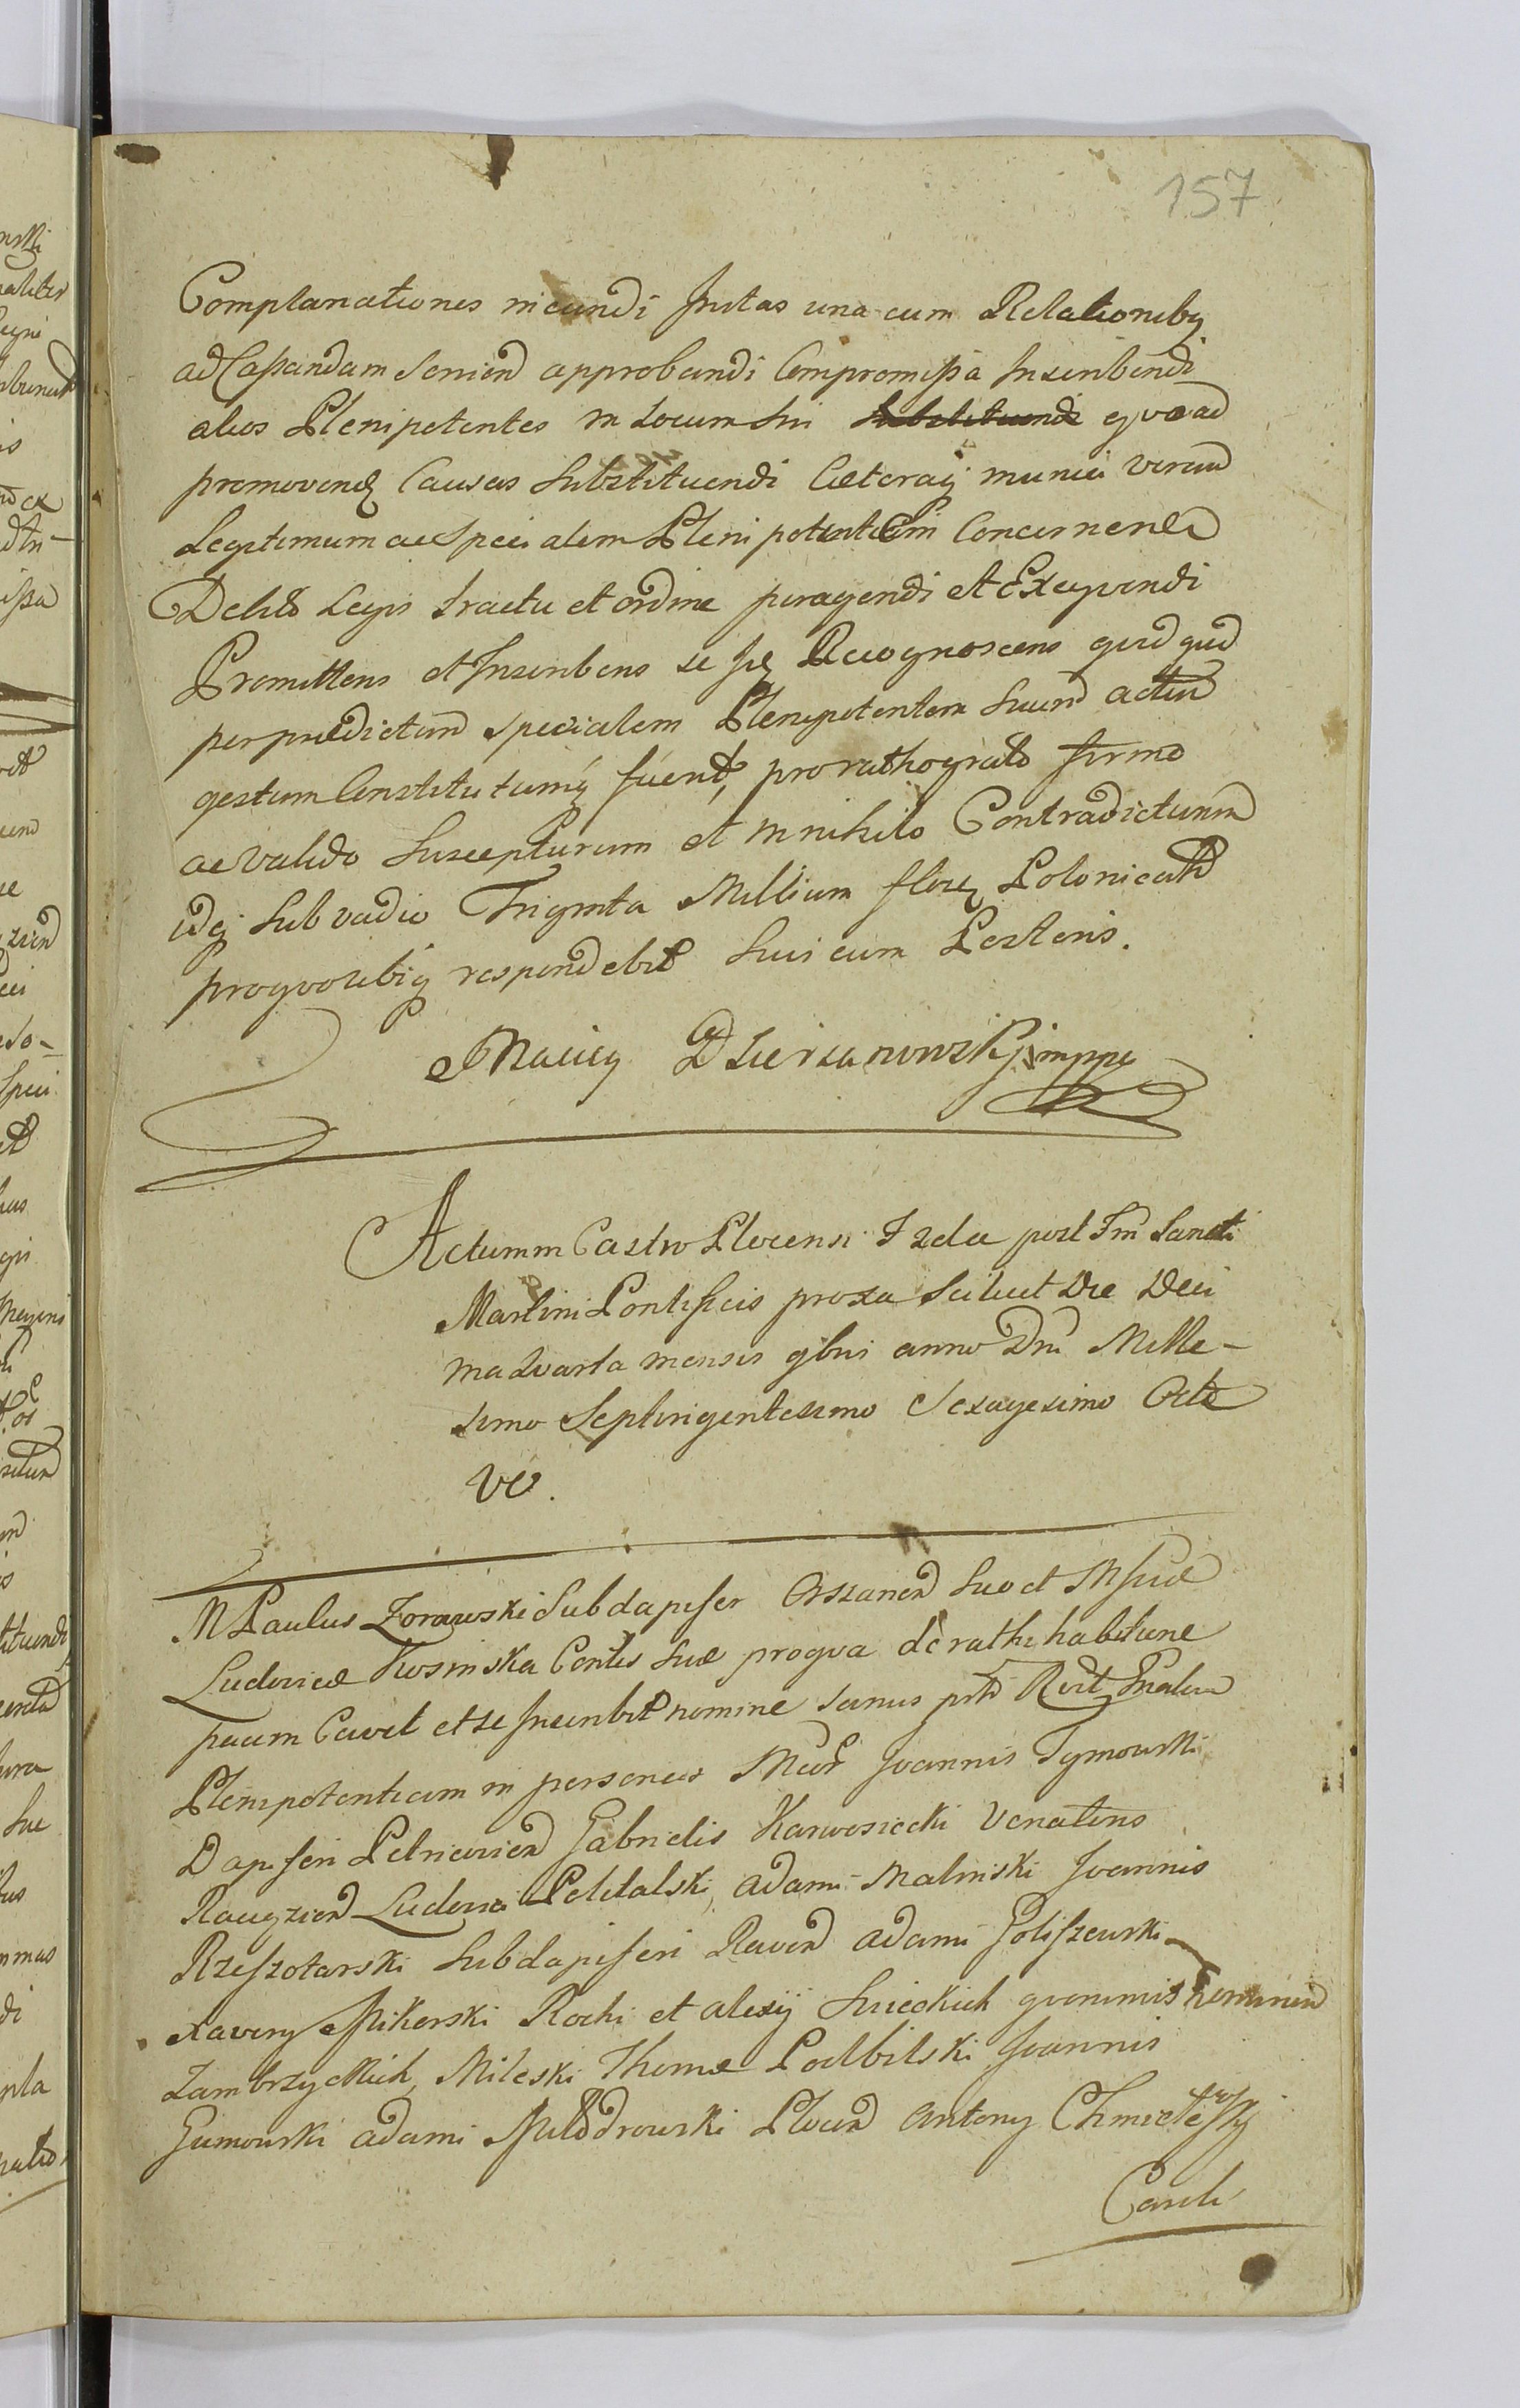 157
Complanationes ineundi Initas una cum Relationibg
ad Cassandam Serviend approbandi Compromissa Inscribendi
alios Plenipotentes in Locum Sui Substituendi qvoad
promovend Causas Substituendi Caeteraq munia verum
Legitimum ac Specialem Plenipotentem Concernentia
Debito Legis tractu et ordine peragendi et Exeqvendi
Promittens et Inscribens se Recognoscens qvidqvid
per praedictum specialem Plenipotentem Suum actum
gestum Constitutumq fuerit, pro ratho grato firmo
ac valido Suscepturum et in nihilo Contradicturum
idq Sub vadio Triginta Millium flor Polonicalium
pro qvo ubiq respondebit Sui cum Posteris.
Maciey Dzierzanowski mppa
Actum in Castro Plocensi Fda post Fm Sancti
Martini Pontificis proxa Scilicet Die Deci
ma Qvarta mensis 9bris anno Dni Mille-
simo Septingentesimo Sexagesimo Octa
vo.
M Paulus Zorawski Subdapifer Orszanen Suo et Mficae
Ludovicae Kosinska Contis Suae pro qva de rathihabitione
Cavet et se Inscribit nomine Sanus
Plenipotentiam in personas Mcor Joannis Tymowski
Dapiferi Gabrielis Karwosiecki Venatoris
Raciązien Ludovici Podolski, Adami Malinski Joannis
Rzeszotarski Subdapiferi Raven Adami Goliszewski
Xavery Mikorski Rochi et Alexij Snieckich
Zambrzyckich, Mileski Thomae Podbilski Joannis
Gumowski Adami Modrowski Plocen Antony Chmielewski